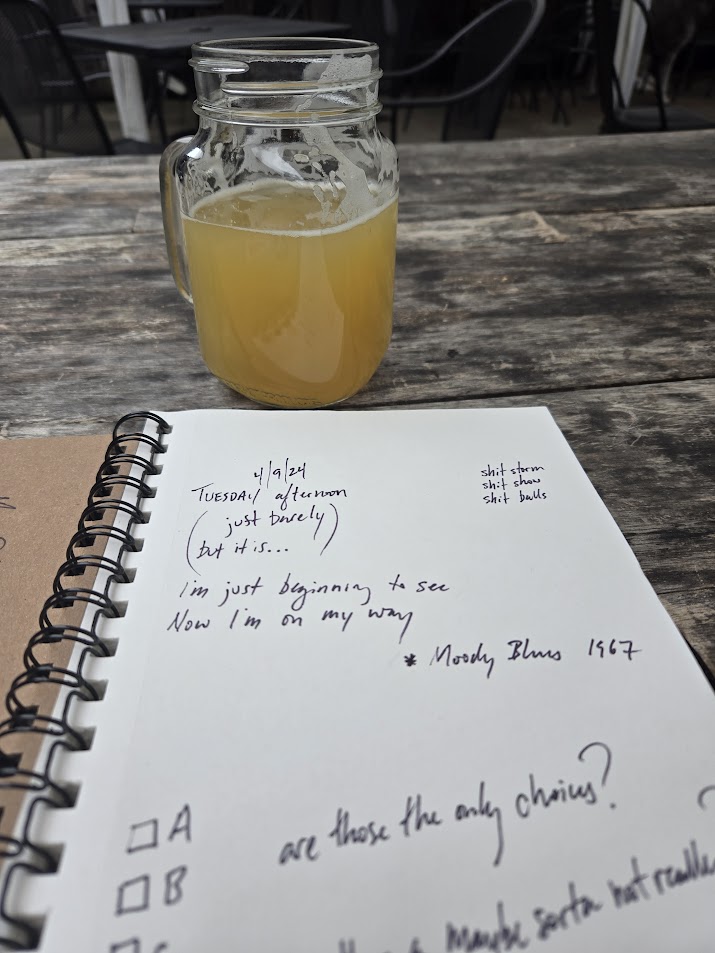 4/9/24
TUESDAY afternoon
(just barely)
(but it is...)
shit storm
shit show
shit balls
I'm just beginning to see
Now I'm on my way
* Moody Blues 1967
□ A
are those the only choices?
□ B
maybe sorta not really